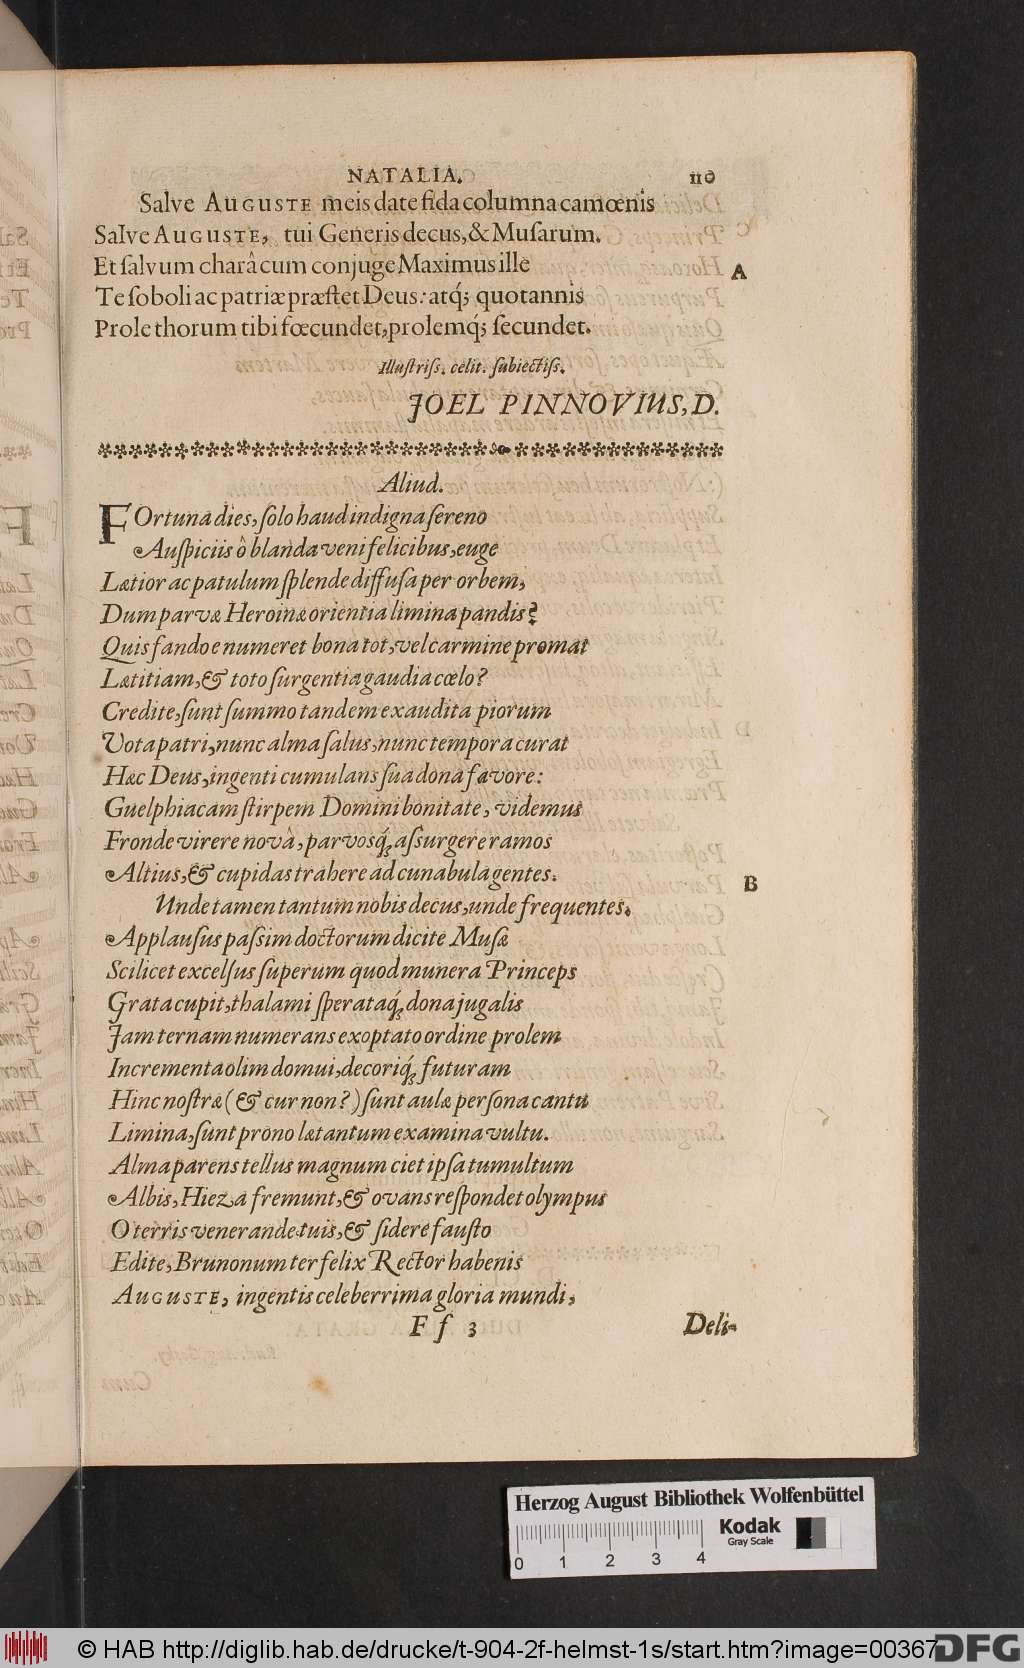 NATALIA. 110
Salve AUGUSTE meis date fida columna camœnis
Salve AUGUSTE, tui Generis decus, & Muſarum.
Et ſalvum charâ cum conjuge Maximus ille
A
Te ſoboli ac patriæ præſtet Deus: atq́; quotannis
Prole thorum tibi fœcundet, prolemq́; ſecundet.
Illuſtriſs. celit. ſubiectiſs.
JOEL PINNOVIUS, D.
Aliud.
FOrtuna dies, ſolo haud indigna ſereno
Auſpiciis ô blanda veni felicibus, euge
Lætior ac patulum ſplende diffuſa per orbem,
Dum parvæ Heroinæ orientia limina pandis?
Quis fando enumeret bona tot, vel carmine promat
Lætitiam, & toto ſurgentia gaudia cœlo?
Credite, ſunt ſummo tandem exaudita piorum
Vota patri, nunc alma ſalus, nunc tempora curat
Hæc Deus, ingenti cumulans ſua dona favore:
Guelphiacam ſtirpem Domini bonitate, videmus
Fronde virere novà, parvosq́; aſsurgere ramos
Altius, & cupidas trahere ad cunabula gentes.
B
Unde tamen tantum nobis decus, unde frequentes.
Applauſus paſsim doctorum dicite Muſæ
Scilicet excelſus ſuperum quod munera Princeps
Grata cupit, thalami ſperataq́; dona jugalis
Jam ternam numerans exoptato ordine prolem
Incrementa olim domui, decoriq́; futuram
Hinc noſtræ (& cur non?) ſunt aulæ perſona cantu
Limina, ſunt prono lætantum examina vultu.
Alma parens tellus magnum ciet ipſa tumultum
Albis, Hieza fremunt, & ovans reſpondet olympus
O terris venerande tuis, & ſidere fauſto
Edite, Brunonum ter felix Rector habenis
AUGUSTE, ingentis celeberrima gloria mundi,
F f 3 Deli-
Herzog August Bibliothek Wolfenbüttel
Kodak
Gray Scale
0 1 2 3 4
© HAB http://diglib.hab.de/drucke/t-904-2f-helmst-1s/start.htm?image=00367
DFG